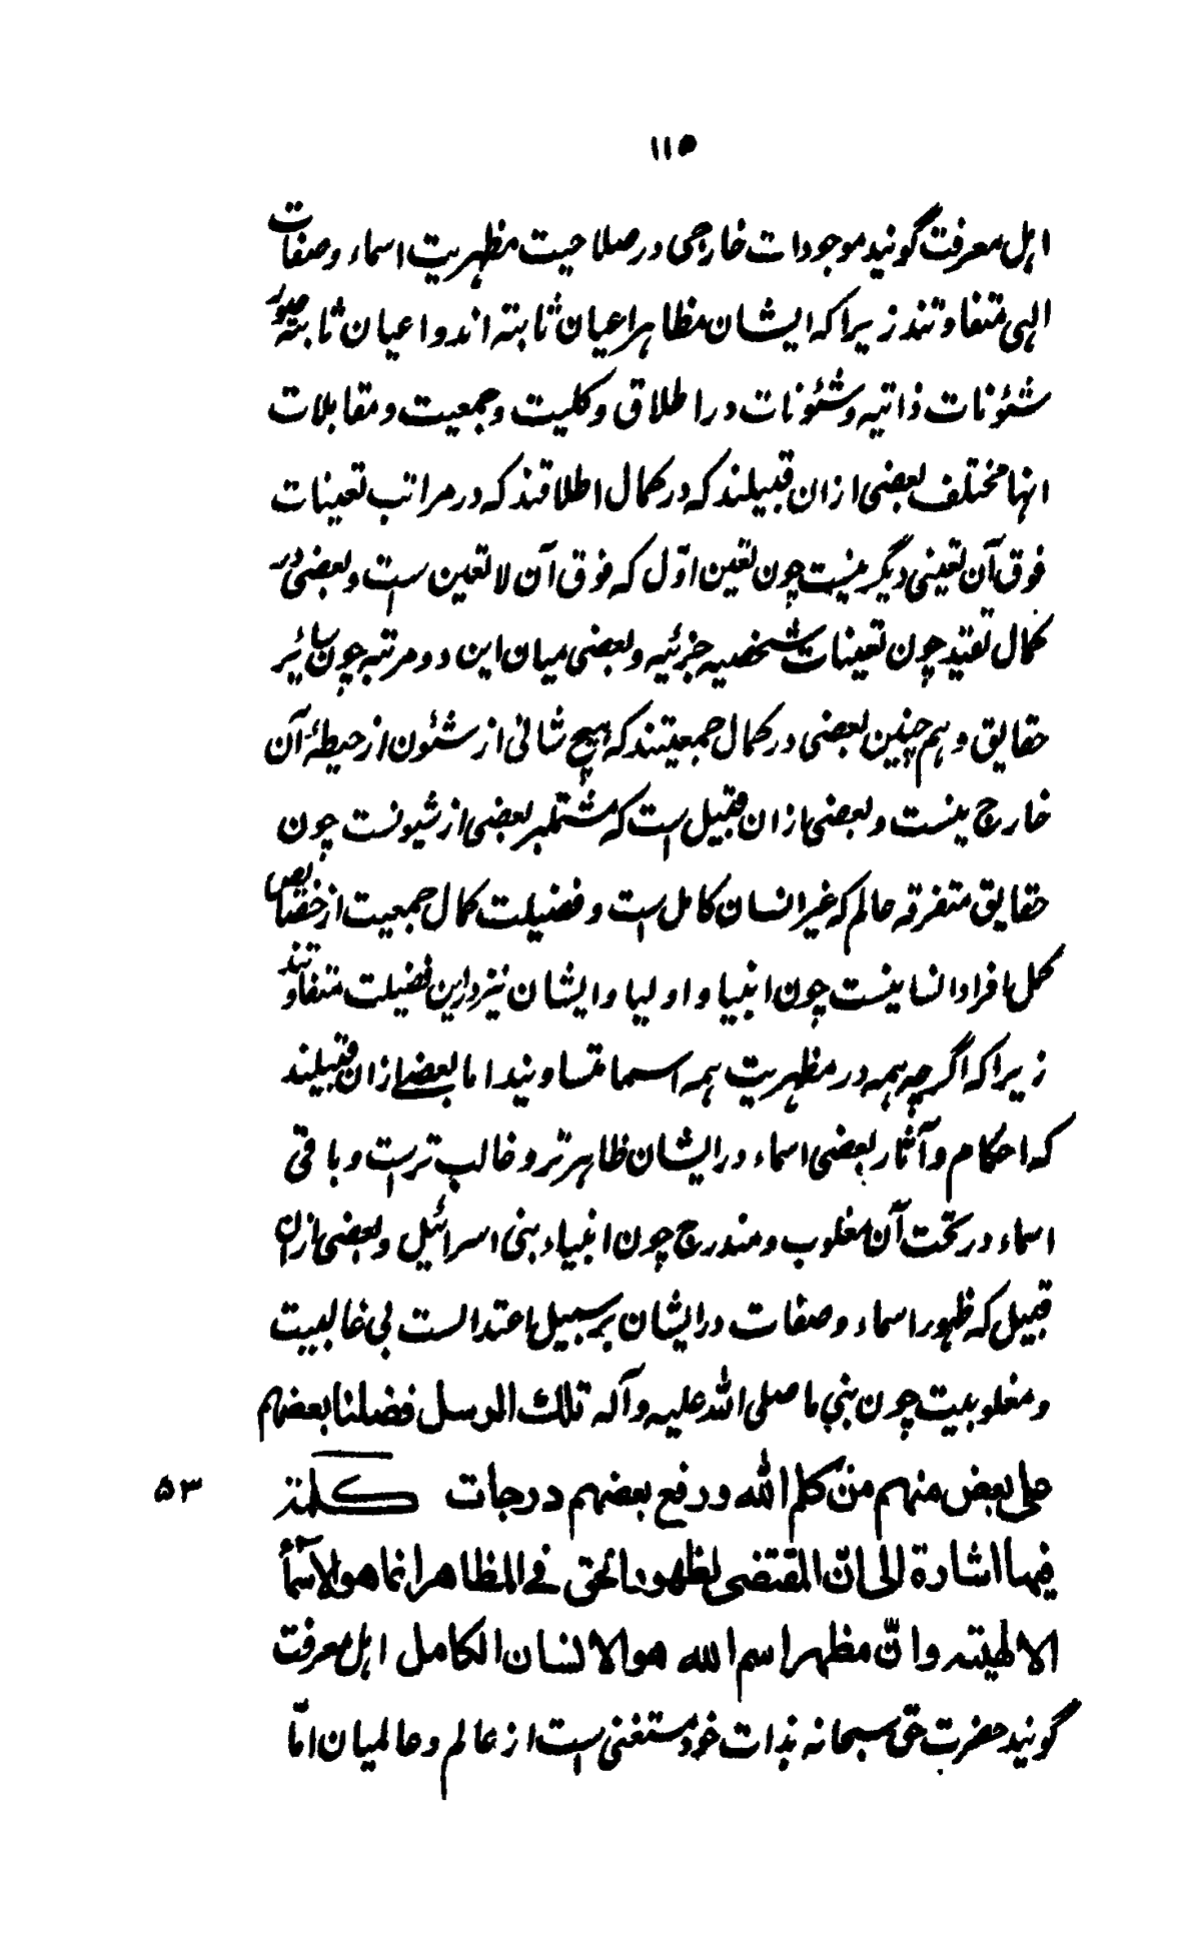 ۱۱۵
اهل معرفت گویند موجودات خارجی در صلاحیت مظهریت اسماء و صفات
الهی متفاوتند زیرا که ایشان مظاهر اعیان ثابته اند و اعیان ثابته صور
شئونات ذاتیه و شئونات در اطلاق و کلیت و جمعیت و مقابلات
انها مختلف بعضی از ان قبیلند که در کمال اطلاقند که در مراتب تعینات
فوق آن تعینی دیگر نیست چون تعین اوّل که فوق آن لا تعین ست و بعضی در
کمال تقید چون تعینات شخصیه جزئیه و بعضی میان این دو مرتبه چون سائر
حقایق و هم چنین بعضی در کمال جمعیتند که هیچ شانی از شئون از حیطهٔ آن
خارج نیست و بعضی از ان قبیل ست که مشتمل بر بعضی از شیونست چون
حقایق متفرقه عالم که غیر انسان کامل ست و فضیلت کمال جمعیت از خصایص
کمل افراد انسانیست چون انبیا و اولیا و ایشان نیز درین فضیلت متفاوتند
زیرا که اگرچه همه در مظهریت همه اسما متساویند اما بعضے از ان قبیلند
که احکام و آثار بعضی اسماء در ایشان ظاهرتر و غالب ترست و باقی
اسماء در تحت آن مغلوب و مندرج چون انبیاء بنی اسرائیل و بعضی از ان
قبیل که ظهور اسماء و صفات در ایشان بر سبیل اعتدالست بی غالبیت
و مغلوبیت چون نبی ما صلی الله علیه و آله تلك الرسل فضلنا بعضهم
علی بعض منهم من کلم الله و رفع بعضهم درجات کلمة ۵۳
فیها اشارة الی انّ المقتضی لظهور الحق فے المظاهر انما هو الاسماء
الالهیته و انّ مظهر اسم الله هو الانسان الکامل اهل معرفت
گویند حضرت حق سبحانه بذات خود مستغنی ست از عالم و عالمیان امّا